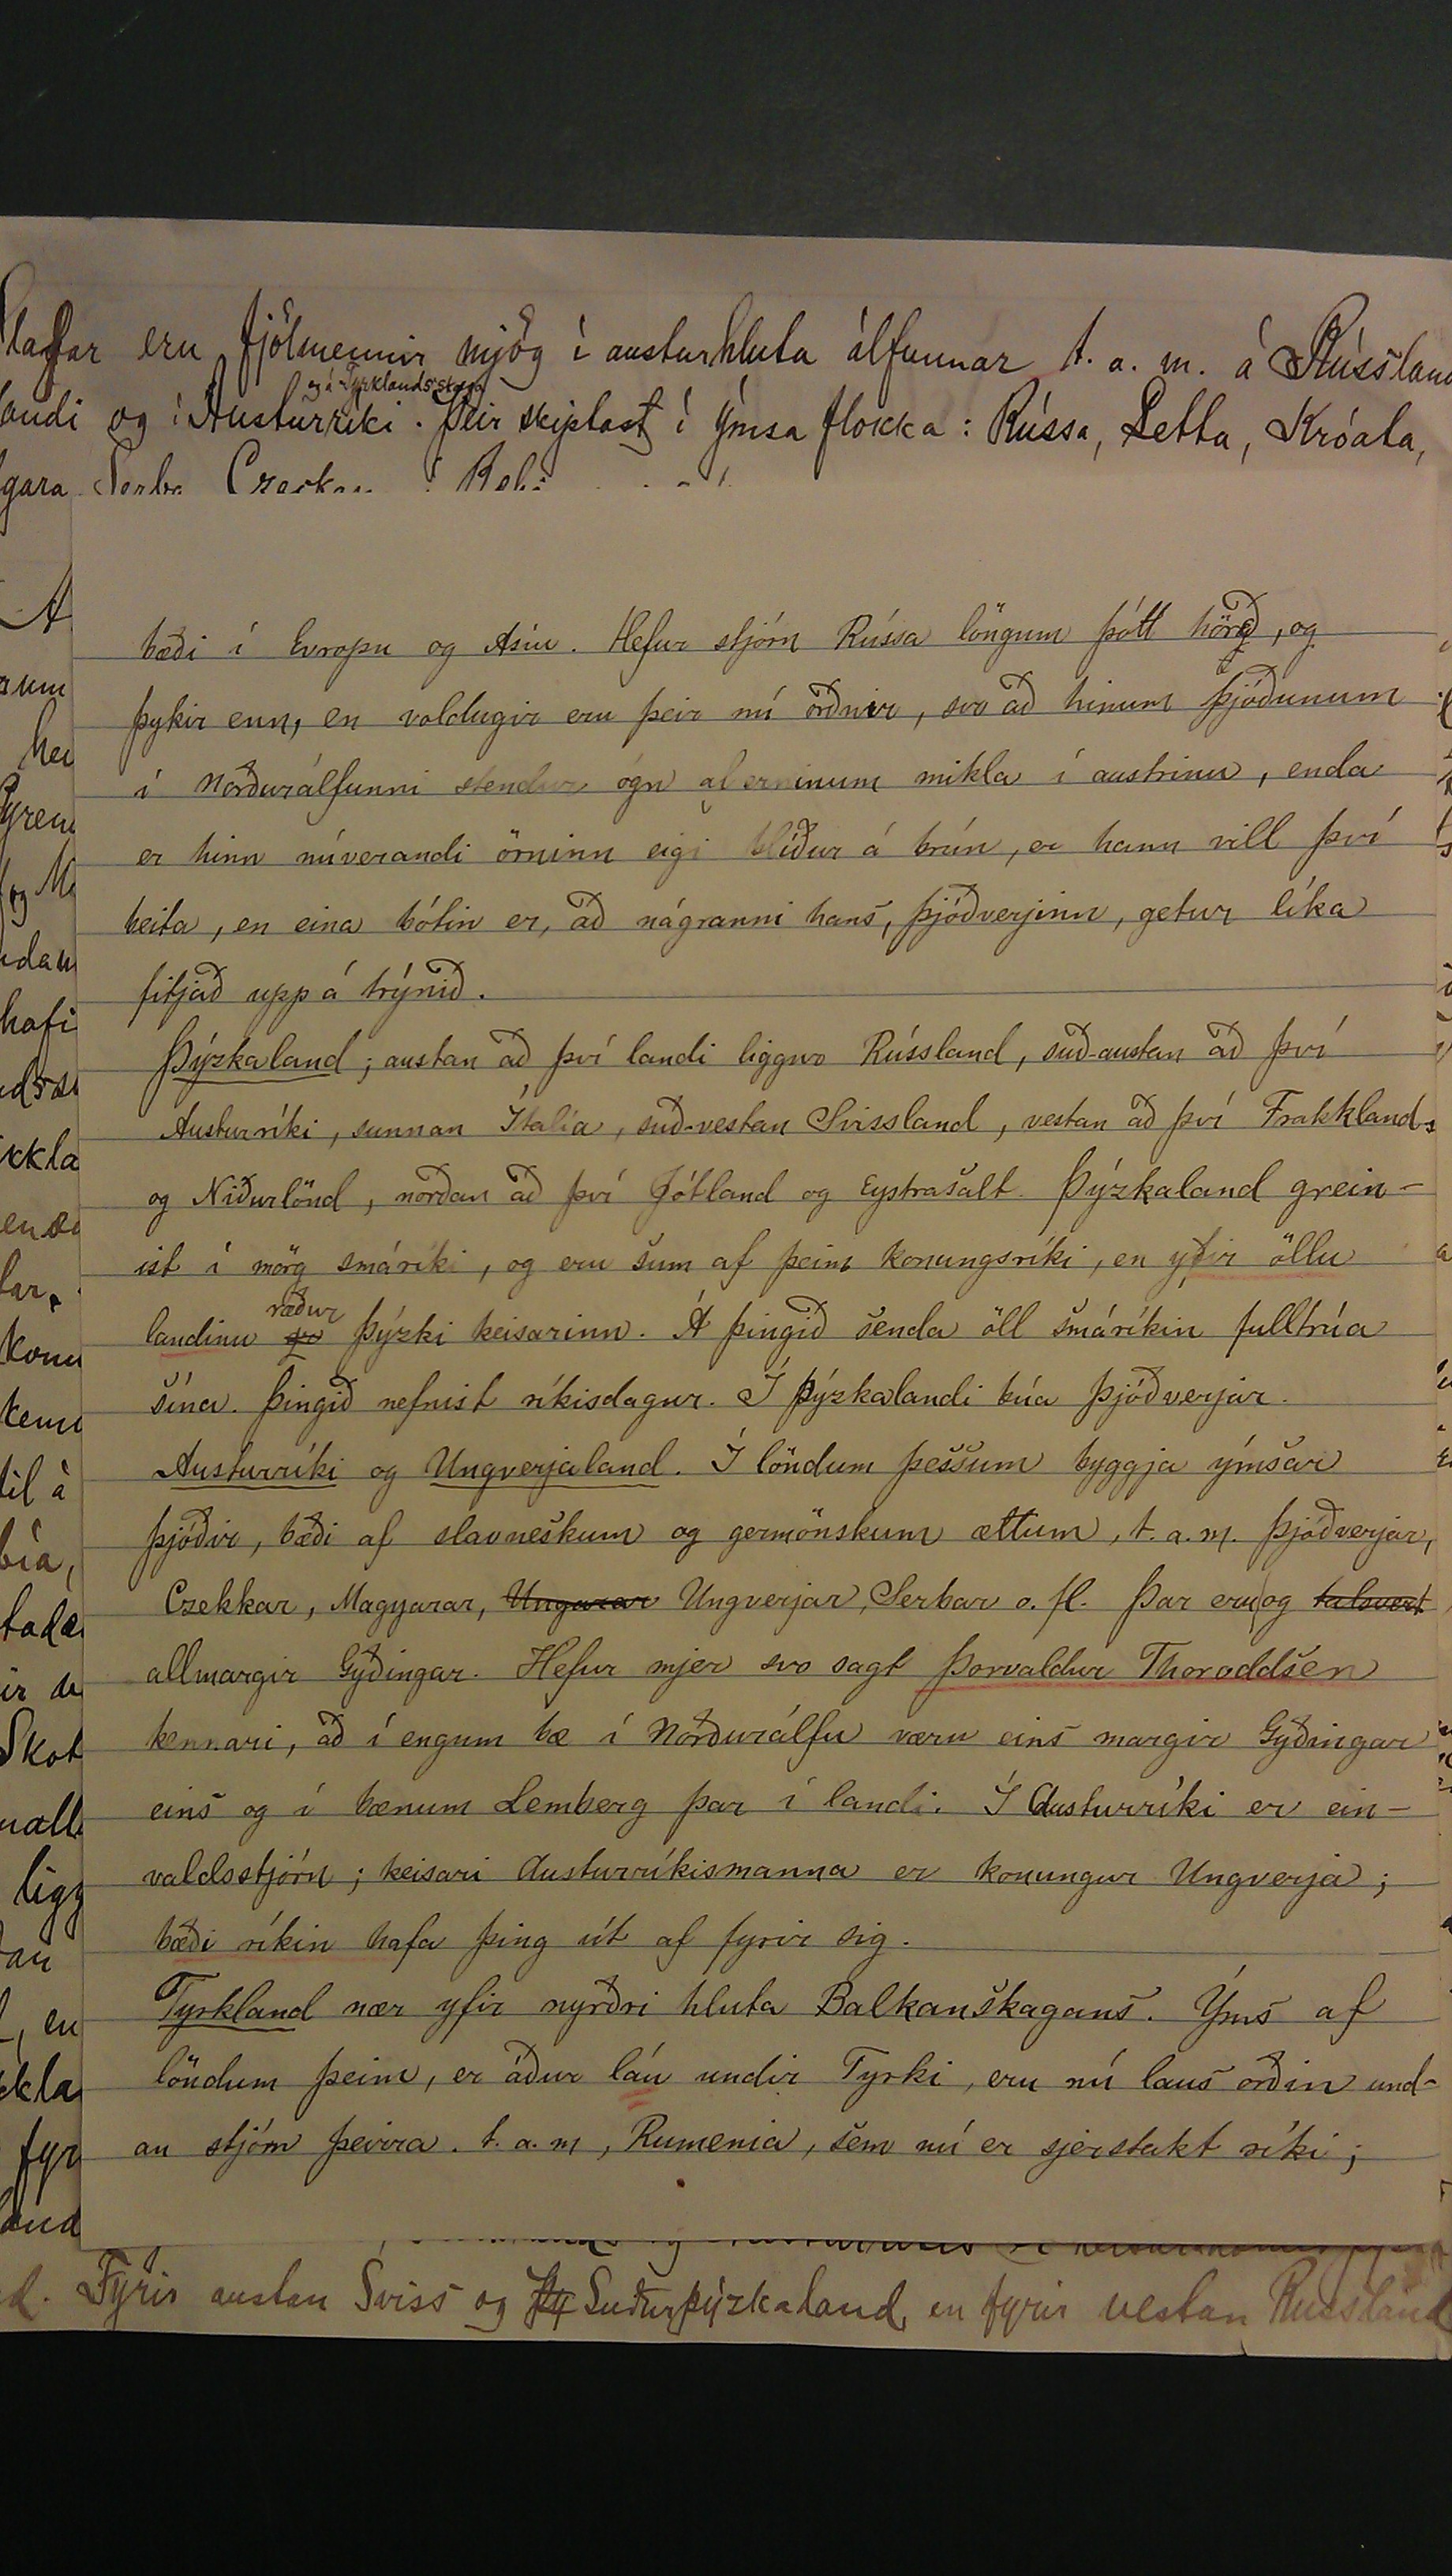 Slafar eru fjölmennir mjög í austurhluta álfunnar t. a. m. á Rússlan
og á Tyrklandsskaga
landi og í Austurríki. Þeir skiptast í ýmsa flokka: Rússa, Letta, Króata,
gara
bæði í Evropu og Asíu. Hefur stjórn Rússa löngum þótt hörð, og
þykir enn, en voldugir eru þeir nú orðnir, svo að hinum þjóðunum
í Norðurálfunni stendur ógn af erninum mikla í austrinu, enda
er hinn núverandi örninn eigi blíður á brún, er hann vill því
beita, en eina bótin er, að nágranni hans, Þjóðverjinn, getur líka
fitjað upp á trýnið.
Þýzkaland; austan að því landi liggur Rússland, suð-austan að því
Austurríki, sunnan Ítalía, suð-vestan Svissland, vestan að því Frakkland
og Niðurlönd, norðan að því Jótland og Eystrasalt. Þýzkaland grein-
ist í mörg smáríki, og eru sum af þeim konungsríki, en yfir öllu
ræður
landinu Þýzki keisarinn. Á þingið senda öll smáríkin fulltrúa
sína. Þingið nefnist ríkisdagur. Í Þýzkalandi búa Þjóðverjar.
Austurríki og Ungverjaland. Í löndum þessum byggja ýmsar
þjóðir, bæði af slavneskum og germönskum ættum, t. a. m. Þjóðverjar,
Czekkar, Magyarar, Ungarar Ungverjar, Serbar o. fl. Þar eru og talsvert
allmargir Gyðingar. Hefur mjer svo sagt Þorvaldur Thoroddsen
kennari, að í engum bæ í Norðurálfu væru eins margir Gyðingar
eins og í bænum Lemberg þar í landi. Í Austurríki er ein-
valdsstjórn; keisari Austurríkismanna er konungur Ungverja;
bæði ríkin hafa þing út af fyrir sig.
Tyrkland nær yfir nyrðri hluta Balkanskagans. Ýms af
löndum þeim, er áður láu undir Tyrki, eru nú laus orðin und-
an stjórn þeirra. t. a. m, Rumenia, sem nú er sjerstakt ríki;
d. Fyrir austan Sviss og Suðurþýzkaland, en fyrir vestan Russland